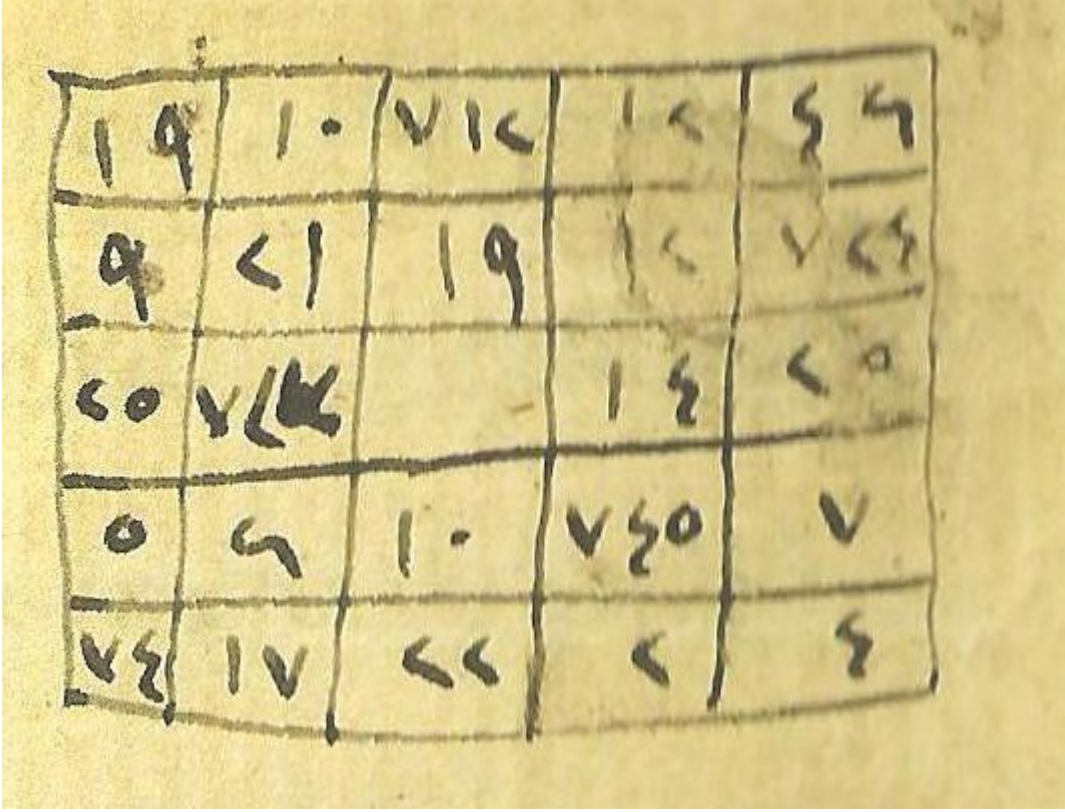 ١٩ ١٠ ٧١٢ ١٢ ٤٦
٩ ٢١ ١٩ ١٢ ٧٢٤
٢٥ ١٤ ٢٥
٥ ٦ ١٠ ٧٤٥ ٧
٧٤ ١٧ ٢٢ ٢ ٤